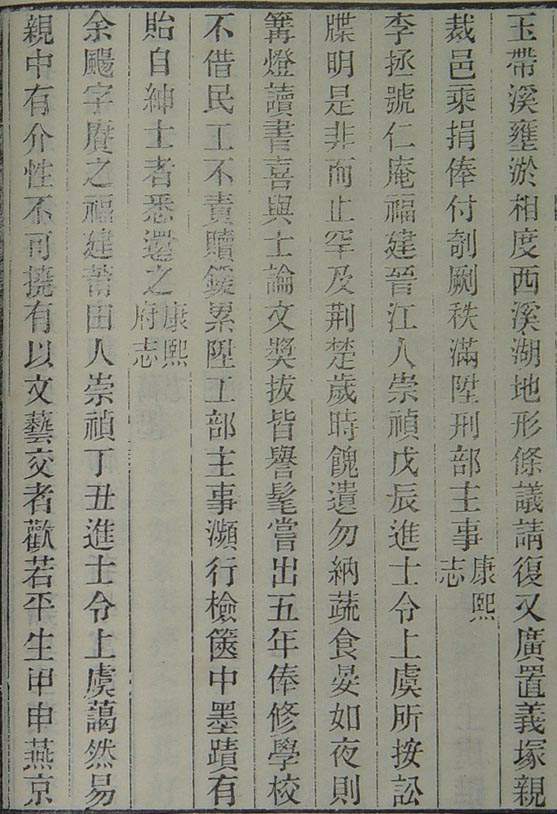 玉帶溪壅淤相度西溪湖地形條議請復又廣置義塚親
裁邑乘捐俸付剞劂秩滿陞刑部主事康熙志
李拯號仁庵福建晉江人崇禎戊辰進士令上虞所按訟
牒明是非而止罕及荆楚歲時餽遺勿納蔬食晏如夜則
篝燈讀書喜與士論文獎拔皆譽髦嘗出五年俸修學校
不借民工不責贖鍰累陞工部主事瀕行檢篋中墨蹟有
貽自紳士者悉還之康熙府志
余颺字賡之福建莆田人崇禎丁丑進士令上虞藹然易
親中有介性不可撓有以文藝交者歡若平生甲申燕京